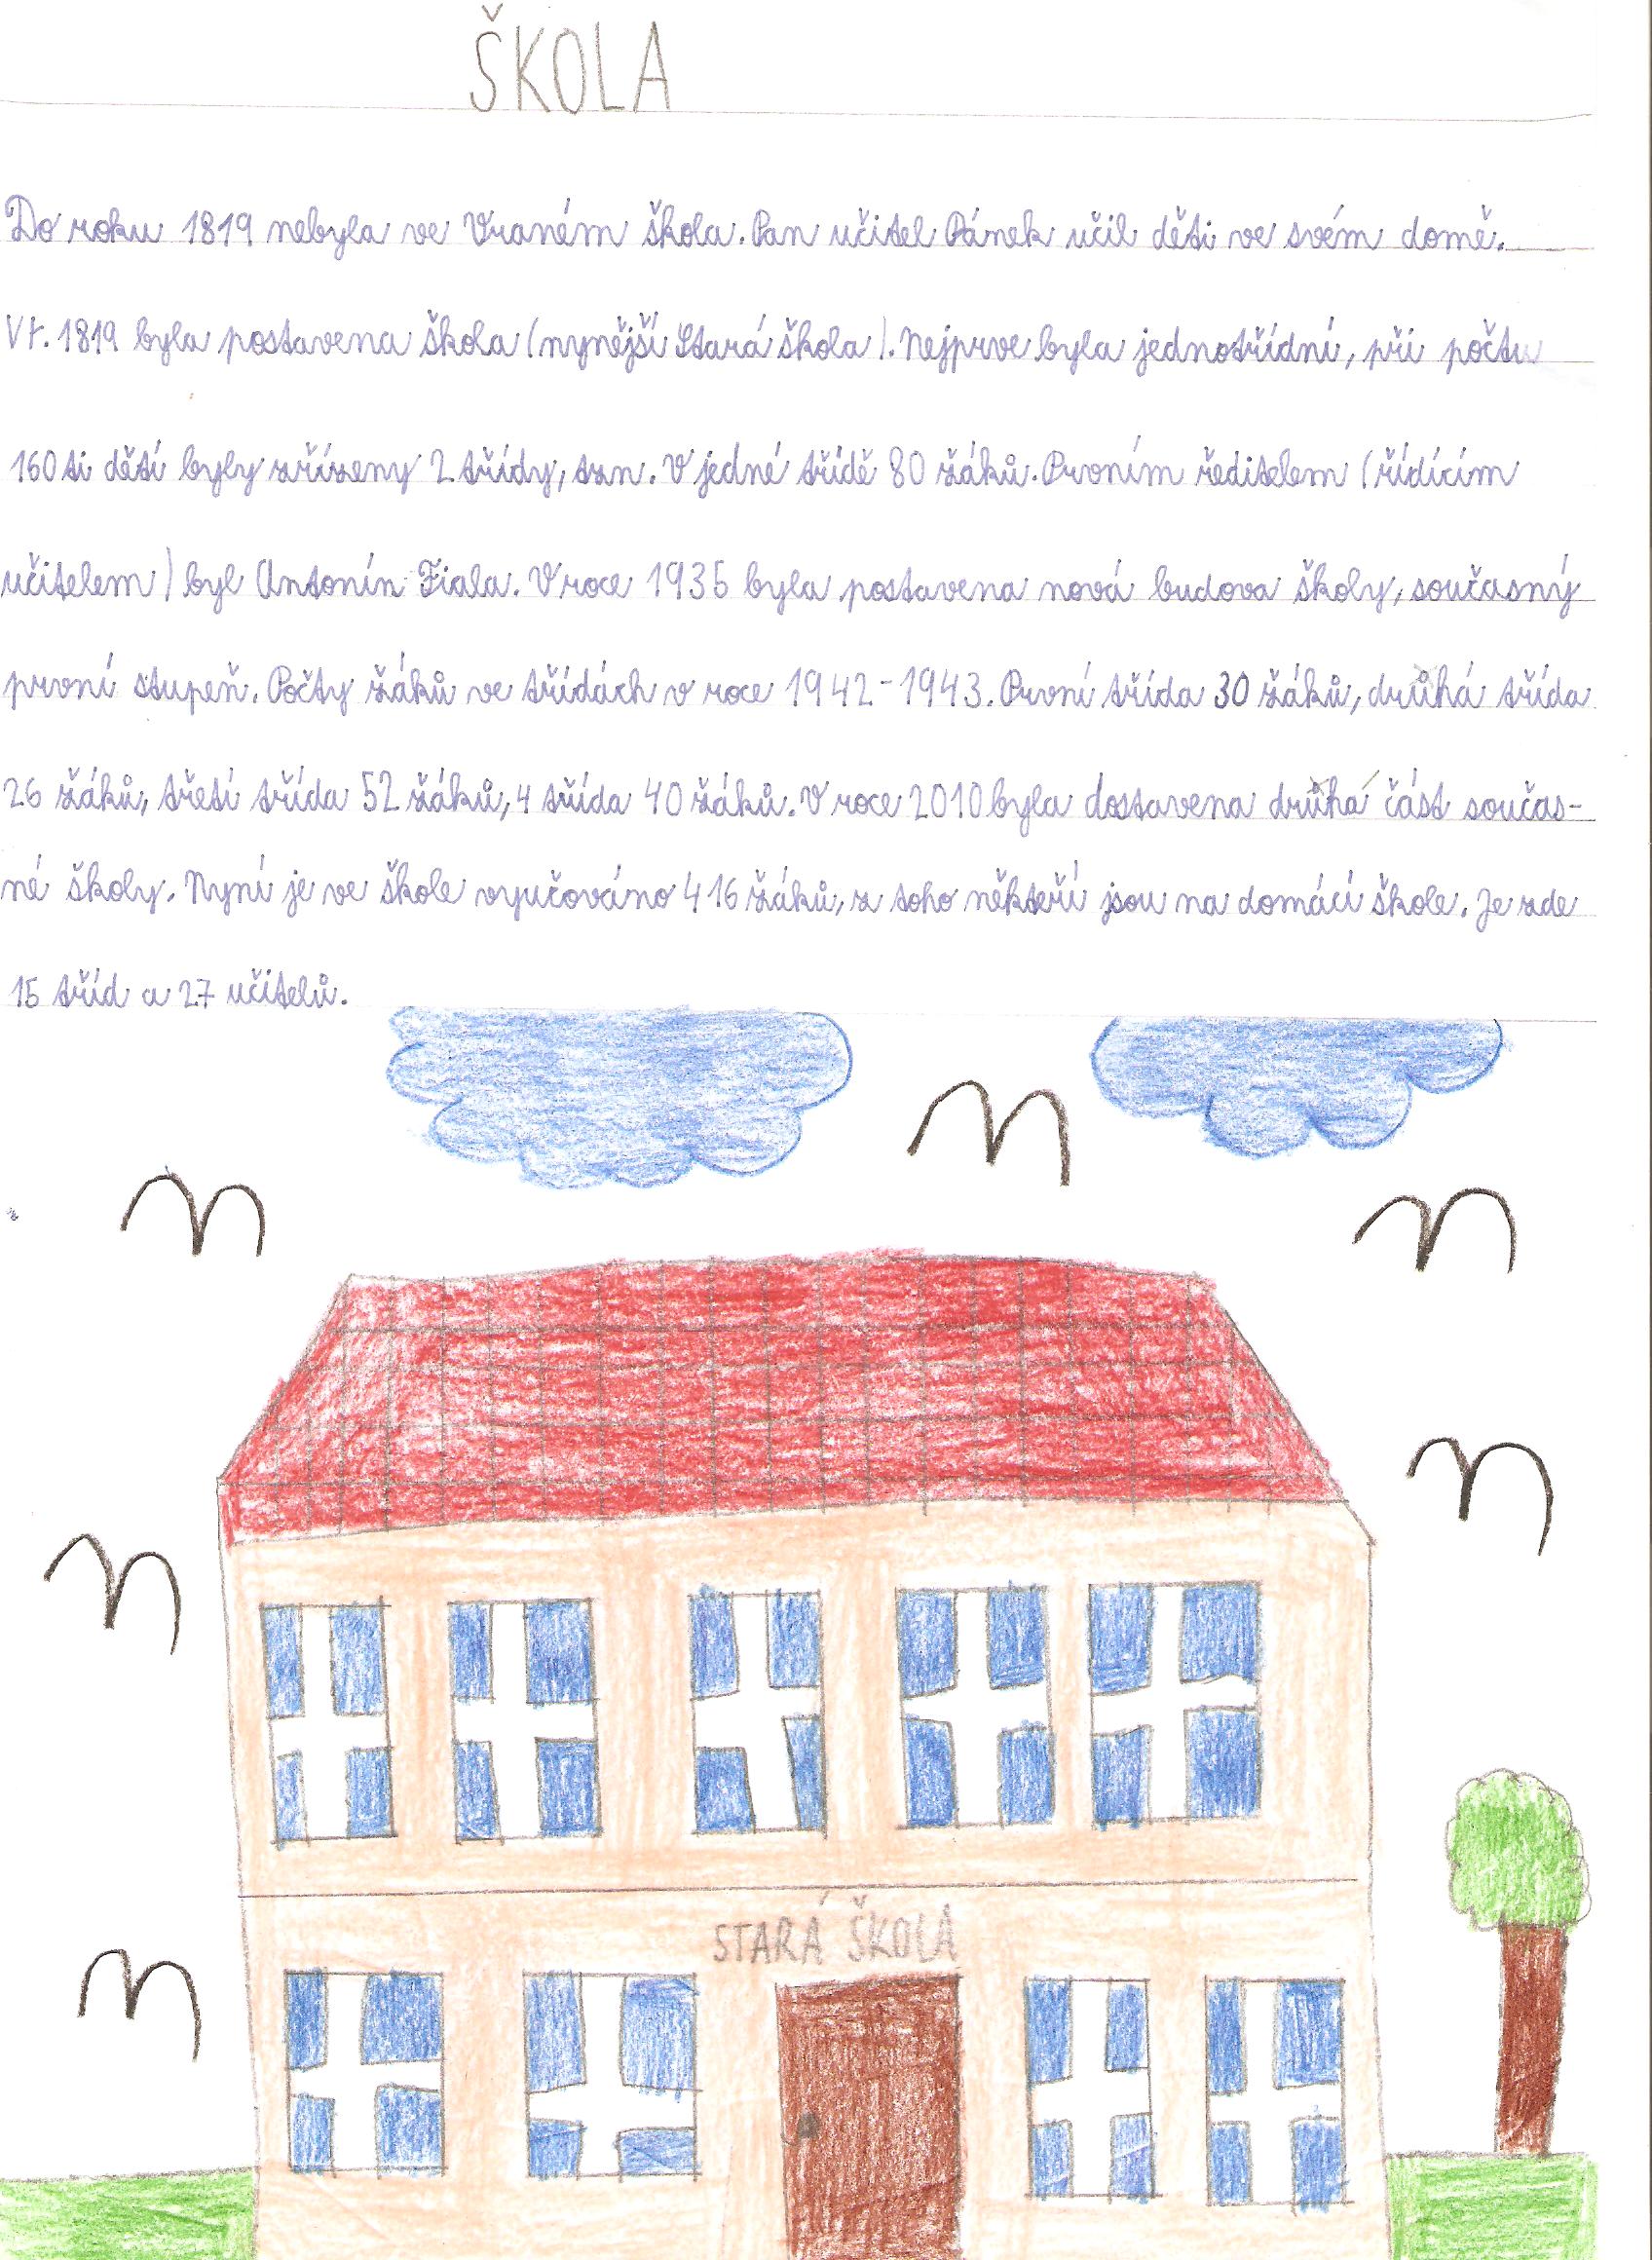 ŠKOLA
Do roku 1819 nebyla ve Vraném škola. Pan učitel Pánek učil děti ve svém domě.
V r. 1819 byla postavena škola (nynější Stará škola). Nejprve byla jednotřídní, při počtu
160ti dětí byly zřízeny 2 třídy, tzn. V jedné třídě 80 žáků. Prvním ředitelem (řídícím
učitelem) byl Antonín Fiala. V roce 1935 byla postavena nová budova školy, současný
první stupeň. Počty žáků ve třídách v roce 1942-1943. První třída 30 žáků, druhá třída
26 žáků, třetí třída 52 žáků, 4 třída 40 žáků. V roce 2010 byla dostavena druhá část součas-
né školy. Nyní je ve škole vyučováno 416 žáků, z toho někteří jsou na domácí škole. Je zde
15 tříd a 27 učitelů.
STARÁ ŠKOLA